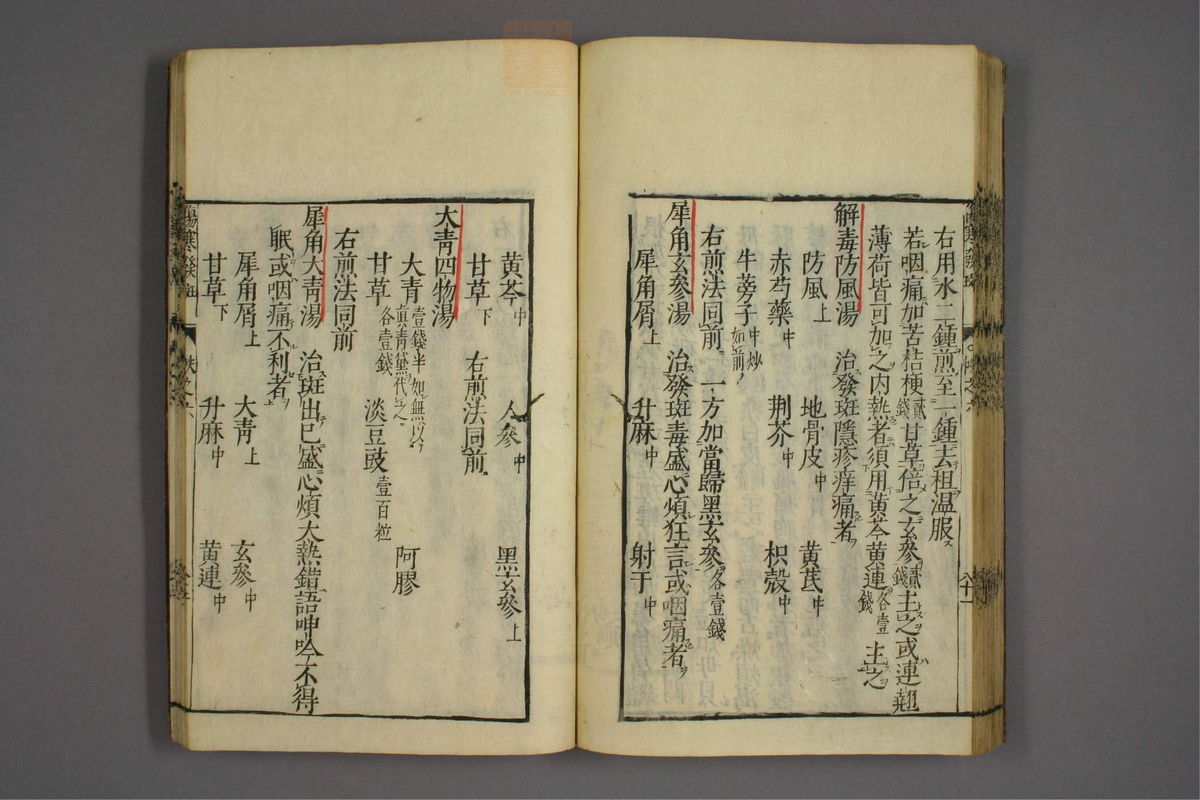 右用水二鍾煎至一鍾去柤温服
若咽痛加苦桔梗貳錢甘草倍之玄參貳錢主之或連翹
薄荷皆可加之内熱者須用黄芩黄連各壹錢主之
解毒防風湯 治發斑隱疹痒痛者
防風上 地骨皮中 黄芪中
赤芍藥中 荆芥中 枳殻中
牛蒡子中炒如前
右煎法同前 一方加當歸黒玄參各壹錢
犀角玄參湯 治發斑毒盛心煩狂言或咽痛者
犀角屑上 升麻中 射干中
黄芩中 人參中 黒玄參上
甘草下 右煎法同前
大青四物湯
大青壹錢半如無以真青黛代之 阿膠
甘草各壹錢 淡豆豉壹百粒
右煎法同前
犀角大青湯 治斑出已盛心煩大熱錯語呻吟不得
眠或咽痛不利者
犀角屑上 大青上 玄參中
甘草下 升麻中 黄連中